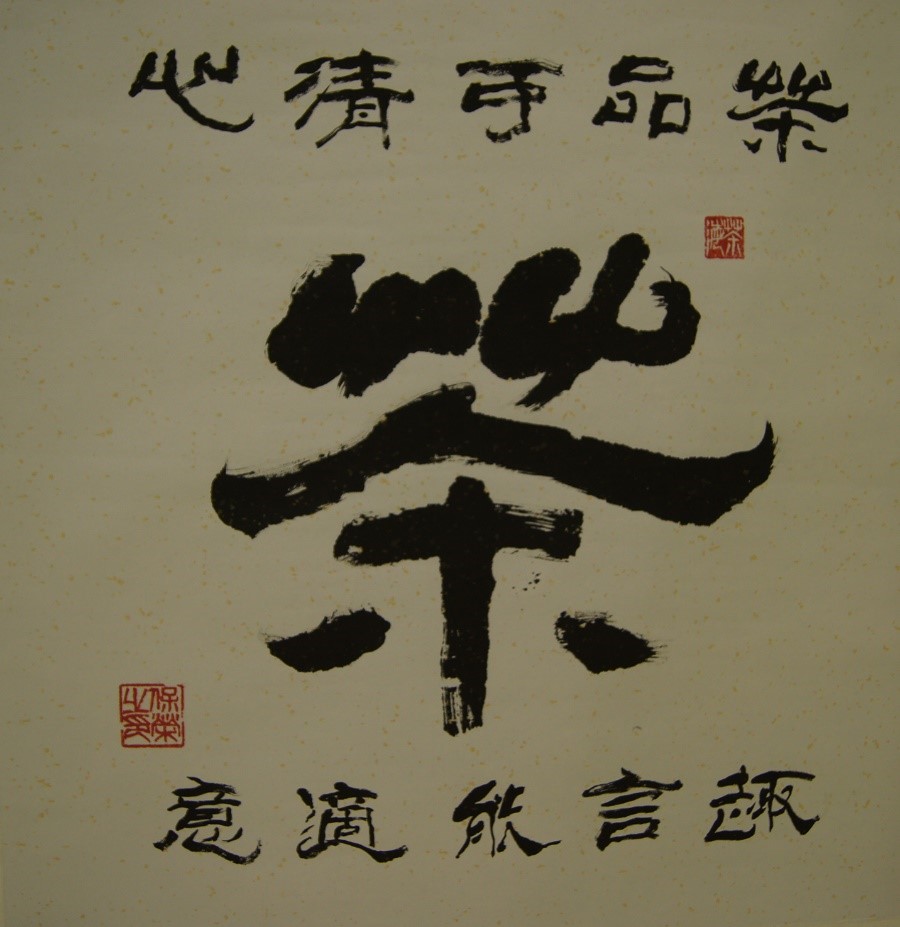 茶品可清心
茶
趣言能適意